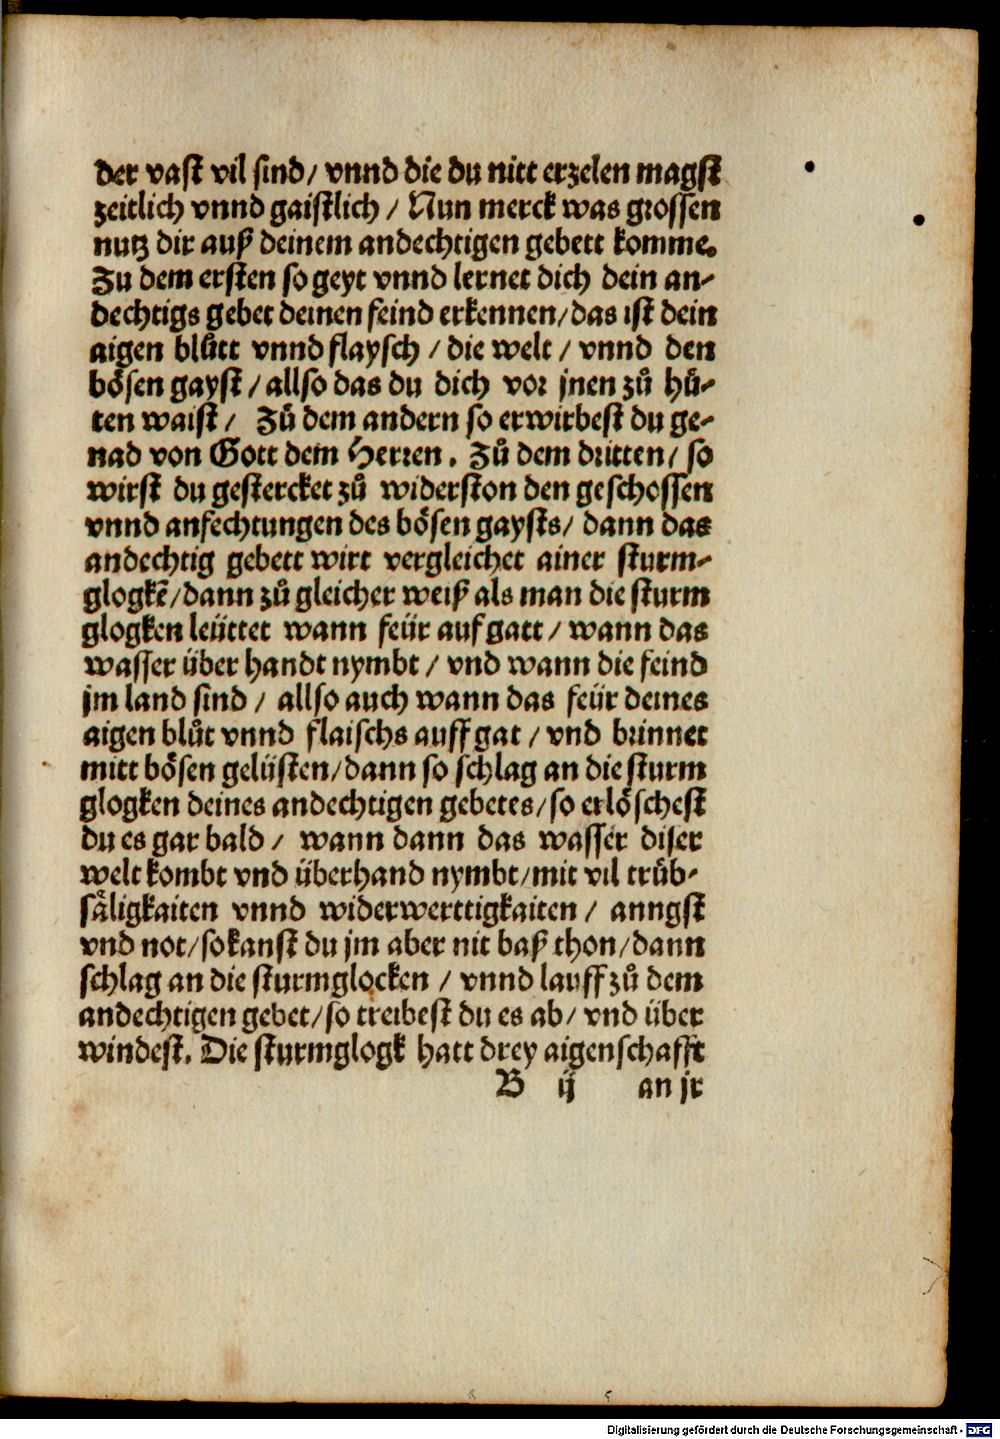 der vast vil sind/ vnnd die du nitt erzelen magst
zeitlich vnnd gaistlich / Nun merck was grossen
nutz dir auß deinem andechtigen gebett komme.
Zu dem ersten so geyt vnnd lernet dich dein an-
dechtigs gebet deinen feind erkennen/das ist dein
aigen blůtt vnnd flaysch / die welt / vnnd den
bösen gayst / allso das du dich vor jnen zů hů-
ten waist / Zů dem andern so erwirbest du ge-
nad von Gott dem Herren. Zů dem dritten/ so
wirst du gestercket zů widerston den geschossen
vnnd anfechtungen des bösen gaysts/ dann das
andechtig gebett wirt vergleichet ainer sturm-
glogkē/dann zů gleicher weiß als man die sturm
glogken leüttet wann feür auf gatt / wann das
wasser über handt nymbt / vnd wann die feind
jm land sind / allso auch wann das feür deines
aigen blůt vnnd flaischs auff gat / vnd brinnet
mitt bösen gelüsten/dann so schlag an die sturm
glogken deines andechtigen gebetes/so erlöschest
du es gar bald / wann dann das wasser diser
welt kombt vnd überhand nymbt/mit vil trůb-
säligkaiten vnnd widerwerttigkaiten / anngst
vnd not/so kanst du jm aber nit baß thon/dann
schlag an die sturmglocken / vnnd lauff zů dem
andechtigen gebet/so treibest du es ab/ vnd über
windest. Die sturmglogk hatt drey aigenschafft
B ij an jr
Digitalisierung gefördert durch die Deutsche Forschungsgemeinschaft - DFG